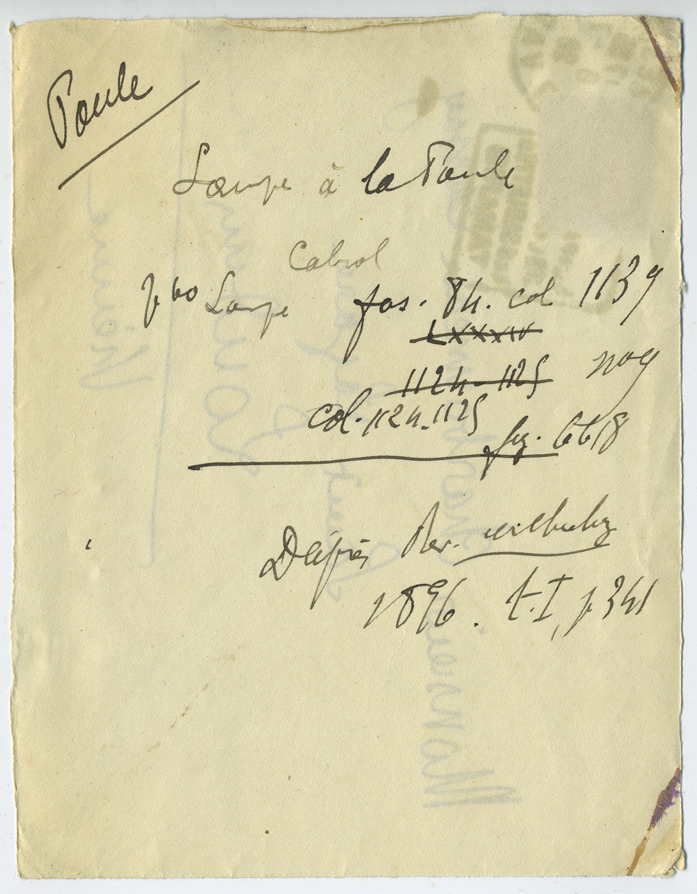 Poule
Lampe à la Poule
Cabrol
Vbo Lampe fas. 84. col 1139
LXXXIV
1124-1125 nog
col. 1124.1125
fig. 6618
D'après Rev.
1896. t. I, p 341